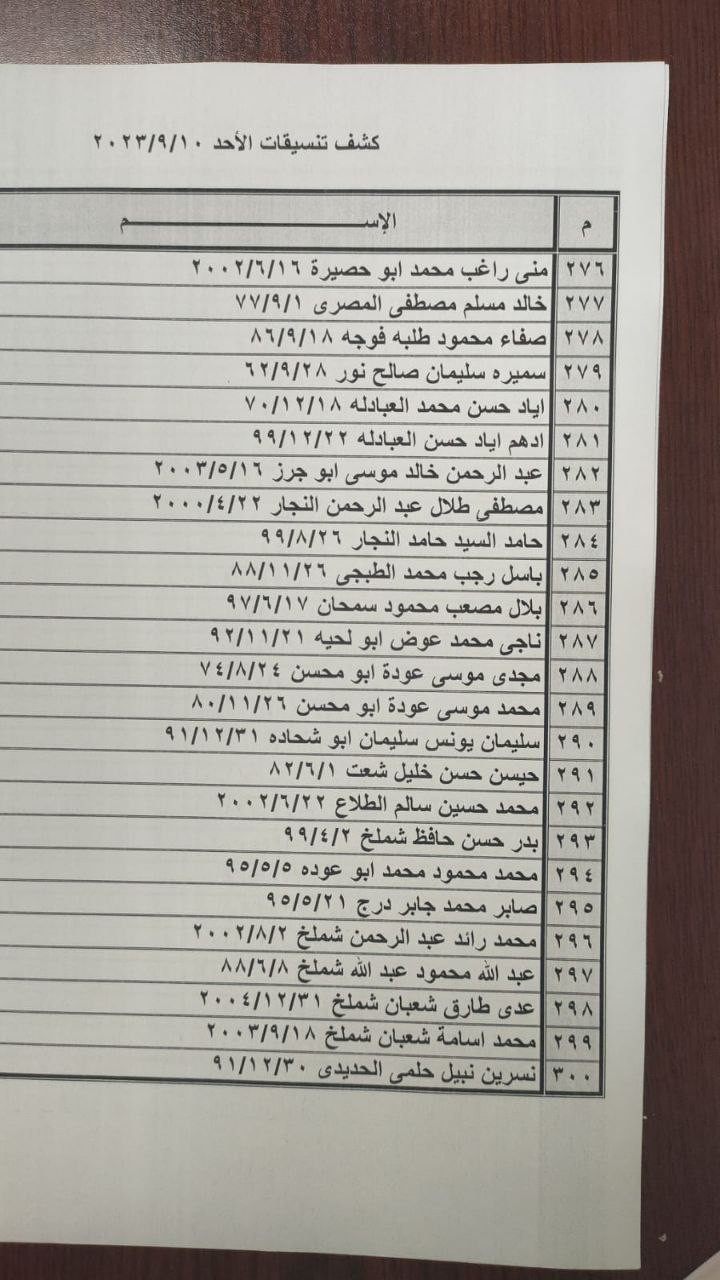 كشف تنسيقات الأحد ٢٠٢٣/٩/١٠
م الإســـــــــــــــــــــــم
٢٧٦ منى راغب محمد ابو حصيرة ٢٠٠٢/٦/١٦
٢٧٧ خالد مسلم مصطفى المصرى ٧٧/٩/١
٢٧٨ صفاء محمود طلبه فوجه ٨٦/٩/١٨
٢٧٩ سميره سليمان صالح نور ٦٢/٩/٢٨
٢٨٠ اياد حسن محمد العبادله ٧٠/١٢/١٨
٢٨١ ادهم اياد حسن العبادله ٩٩/١٢/٢٢
٢٨٢ عبد الرحمن خالد موسى ابو جرز ٢٠٠٣/٥/١٦
٢٨٣ مصطفى طلال عبد الرحمن النجار ٢٠٠٠/٤/٢٢
٢٨٤ حامد السيد حامد النجار ٩٩/٨/٢٦
٢٨٥ باسل رجب محمد الطبجى ٨٨/١١/٢٦
٢٨٦ بلال مصعب محمود سمحان ٩٧/٦/١٧
٢٨٧ ناجى محمد عوض ابو لحيه ٩٢/١١/٢١
٢٨٨ مجدى موسى عودة ابو محسن ٧٤/٨/٢٤
٢٨٩ محمد موسى عودة ابو محسن ٨٠/١١/٢٦
٢٩٠ سليمان يونس سليمان ابو شحاده ٩١/١٢/٣١
٢٩١ حيسن حسن خليل شعت ٨٢/٦/١
٢٩٢ محمد حسين سالم الطلاع ٢٠٠٢/٦/٢٢
٢٩٣ بدر حسن حافظ شملخ ٩٩/٤/٢
٢٩٤ محمد محمود محمد ابو عوده ٩٥/٥/٥
٢٩٥ صابر محمد جابر درج ٩٥/٥/٢١
٢٩٦ محمد رائد عبد الرحمن شملخ ٢٠٠٢/٨/٢
٢٩٧ عبد الله محمود عبد الله شملخ ٨٨/٦/٨
٢٩٨ عدى طارق شعبان شملخ ٢٠٠٤/١٢/٣١
٢٩٩ محمد اسامة شعبان شملخ ٢٠٠٣/٩/١٨
٣٠٠ نسرين نبيل حلمى الحديدى ٩١/١٢/٣٠